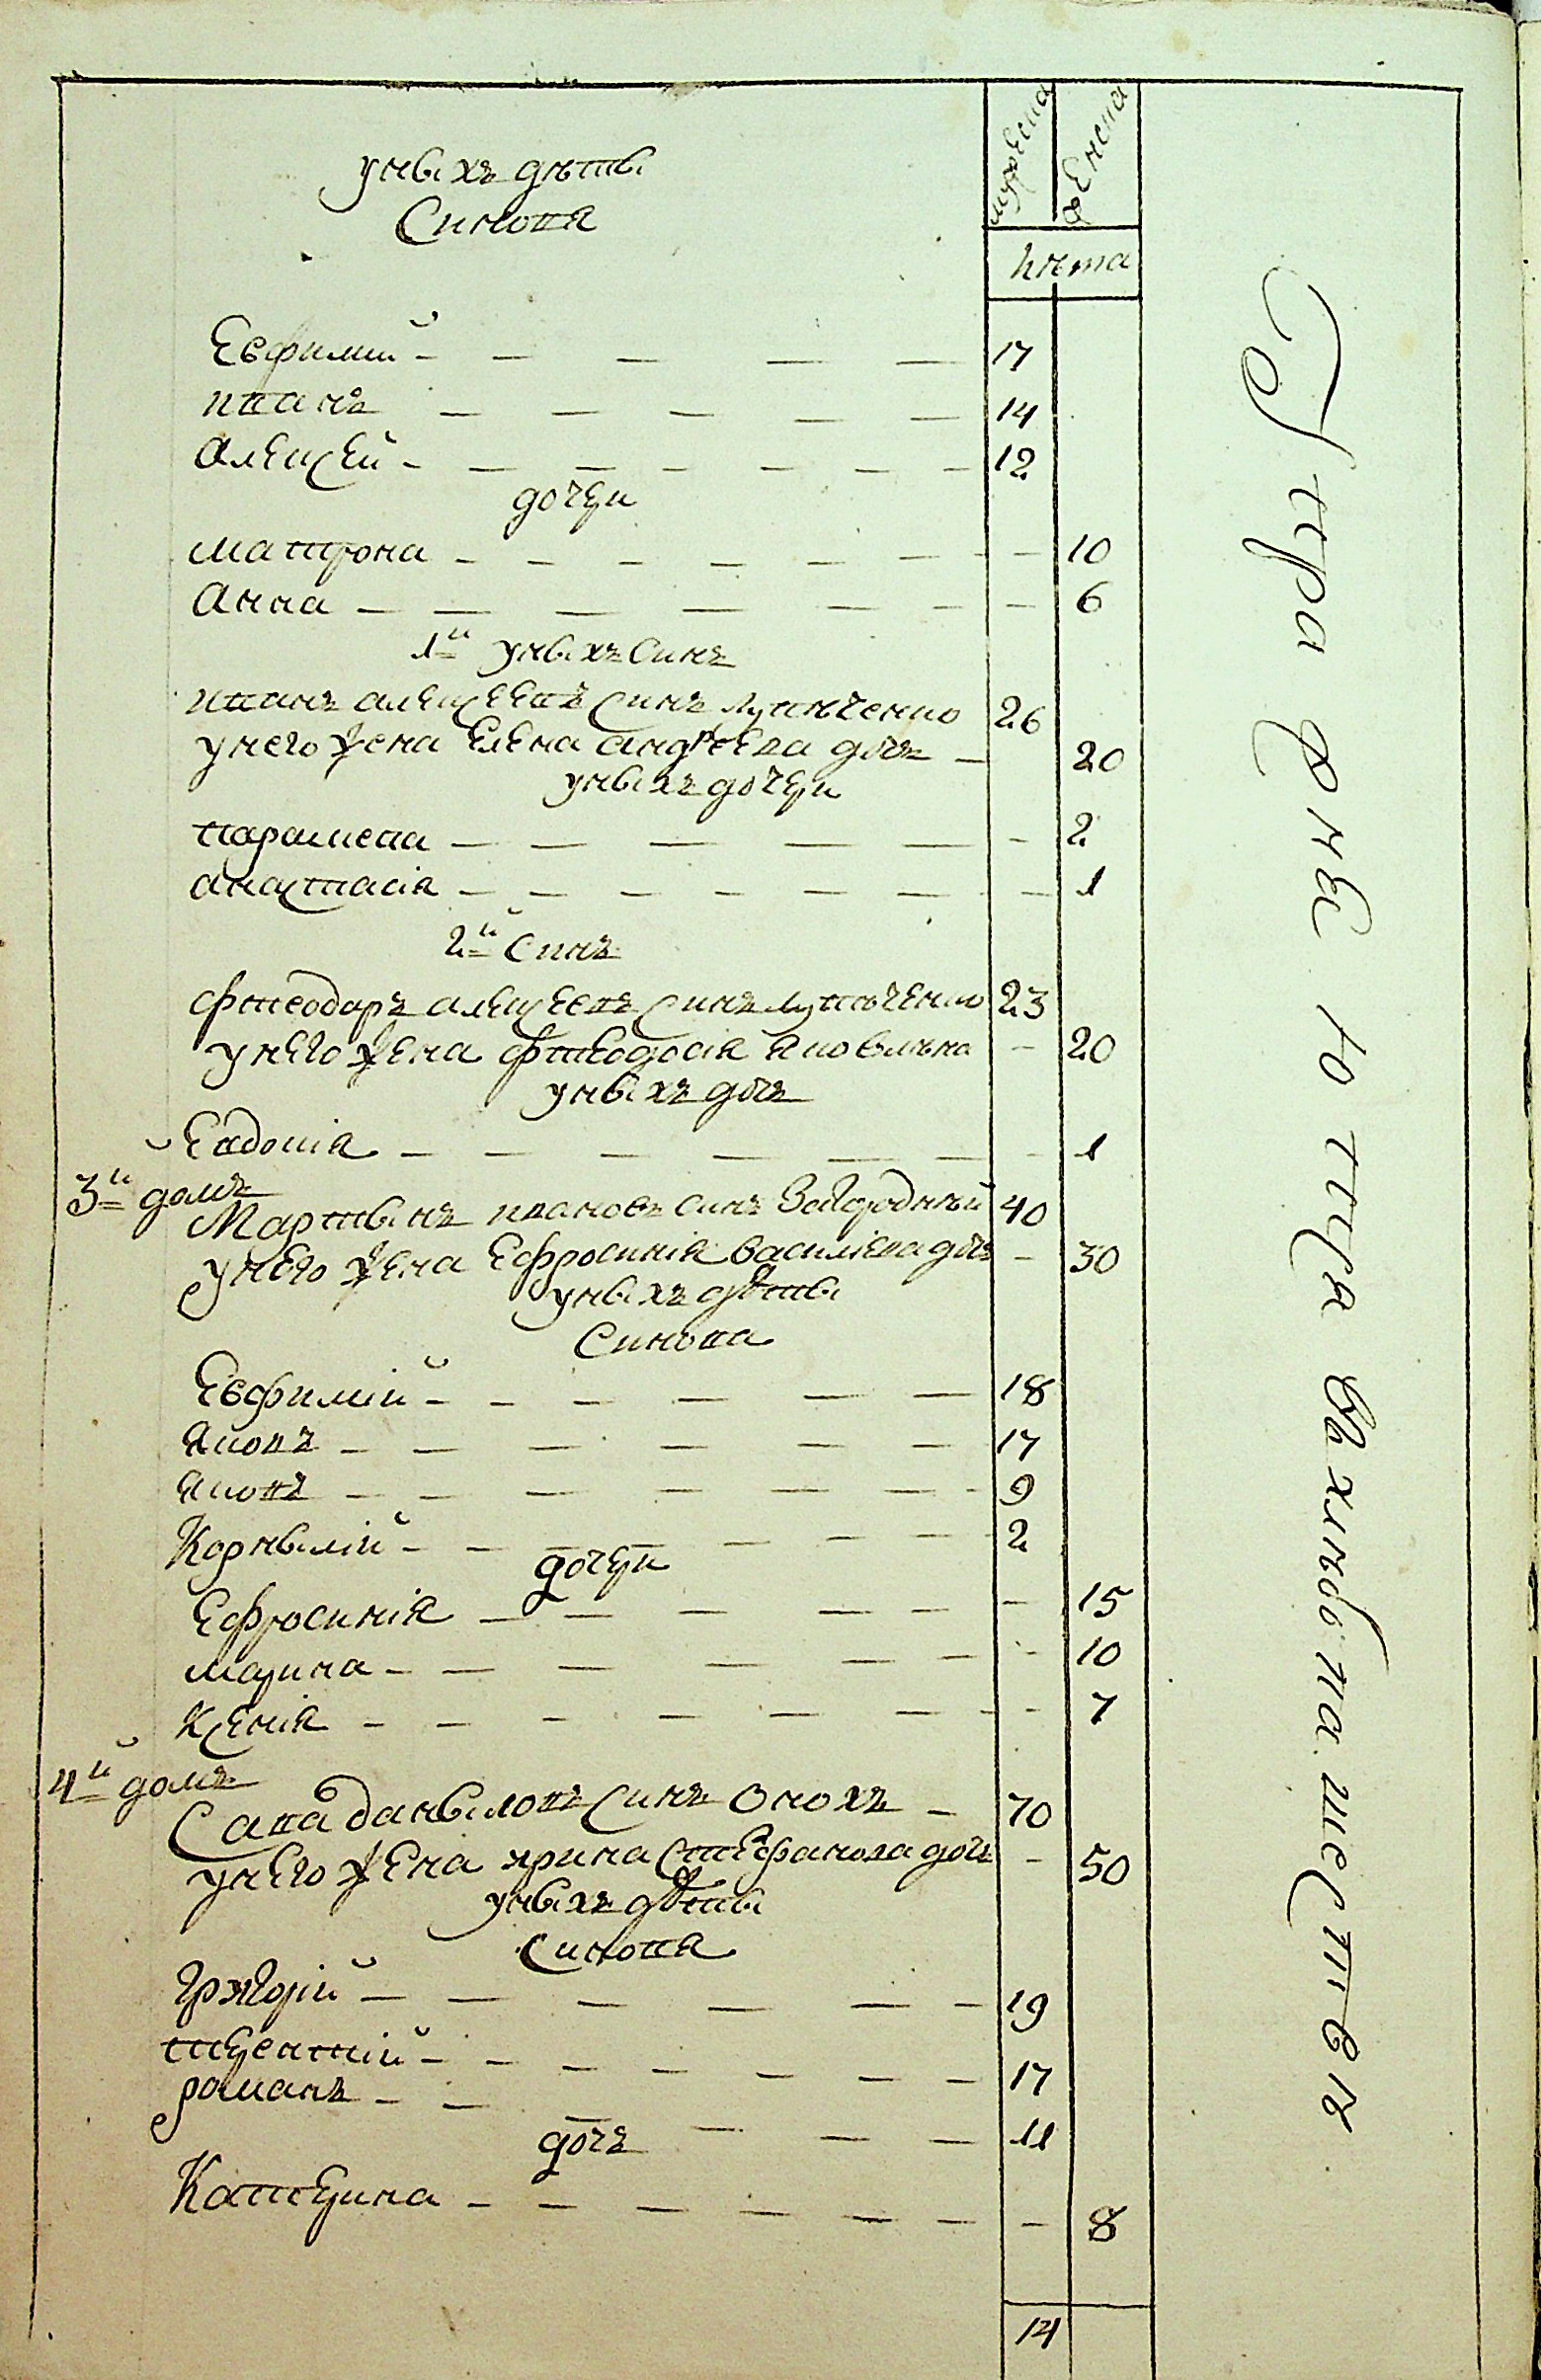 мужеска
женска
унихъ дѣти
Синовя
лѣта
Евфимий - 17
иванъ - 14
алеѯей - 12
дочери
матрона - 10
анна - 6
1й унихъ синъ
иванъ алеѯеевъ синъ Лутченко 26
унего жена Елена андреева дочъ - 20
унихъ дочери
параскева - 2
анастасія - 1
2й синъ
Фтеодоръ алеѯеевъ синъ Лутченко 23
унего жена Фтеодосія яковлѣва - 20
унихъ дочъ
Евдокія - 1
3й домъ
Мартинъ ивановъ синъ Загородный 40
унего жена Ефросинія василіева дочъ - 30
унихъ дѣти
Синова
Евфимій - 18
яковъ - 17
яковъ - 9
Корнилій - 2
дочери
Ефросинія - 15
марина - 10
Кѯенія - 7
4й домъ
Сава даниловъ синъ
унего жена ирина Стефанова дочъ - 50
70
унихъ дѣти
Синовя
Григорій - 19
терентій - 17
романъ - 11
дочъ
Катерина - 8
14
упражнеютця вхлѣбопашестве